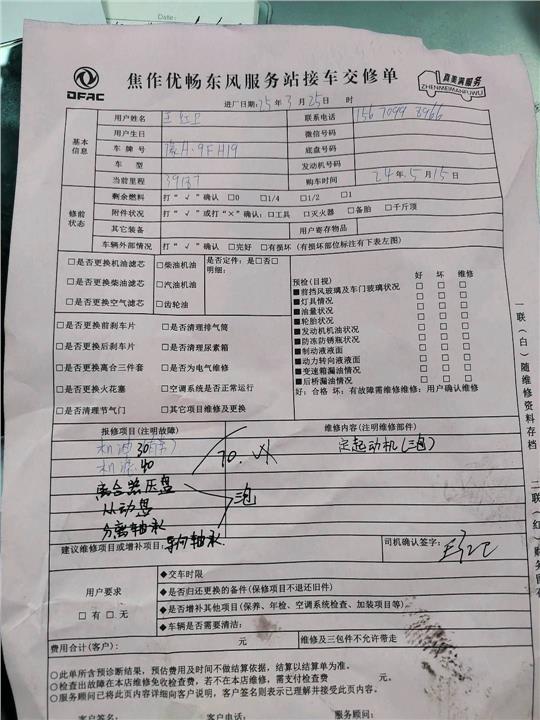 DFAC
焦作优畅东风服务站接车交修单
真美满服务
ZHENMEIMANFUWU
进厂日期:25年3月25日 时
基本信息
用户姓名 联系电话
用户生日 微信号码
车牌号 豫H·9FH19 底盘号码
车型 发动机号码
当前里程 39137 购车时间 24年5月15日
修前状态
剩余燃料 打“√”确认 □0 □1/4 □1/2 □1
附件状况 打“√”或打“×”确认:□工具 □灭火器 □备胎 □千斤顶
其它装备 用户寄存物品
车辆外部情况 打“√”确认 □完好 □有损坏(有损坏部位标注有下表左图)
□是否更换机油滤芯 □柴油机油 是否定件:是□否□
□是否更换柴油滤芯 □汽油机油 明细:
□是否更换空气滤芯 □齿轮油
□是否更换前刹车片 □是否清理排气筒
□是否更换后刹车片 □是否清理尿素箱
□是否更换离合三件套 □是否为电气维修
□是否更换火花塞 □空调系统是否正常运行
□是否清理节气门 □其它项目维修及更换
预检(目视) 好 坏 维修
■前挡风玻璃及车门玻璃状况 □ □ □
■灯具情况 □ □ □
■油量状况 □ □ □
■轮胎状况 □ □ □
■发动机机油状况 □ □ □
■防冻防锈瓶状况 □ □ □
■制动液液面 □ □ □
■动力转向液液面 □ □ □
■变速箱漏油情况 □ □ □
■后桥漏油情况 □ □ □
好:合格 坏:有故障需维修维修:用户确认维修
报修项目(注明故障) 维修内容(注明维修部件)
机油30 70. 定起动机(三包)
机滤40
离合器压盘
从动盘 三包
分离轴承
建议维修项目或增补项目: 导向轴承. 司机确认签字:
用户要求
□有 □无
◆交车时限
◆是否归还更换的备件(保修项目不退还旧件)
◆是否增补其他项目(保养、年检、空调系统检查、加装项目等)
◆车辆是否需要清洁:
费用合计(客户): 元 维修及三包件不允许带走
○此单所含预诊断结果,预估费用及时间不做结算依据,结算以结算单为准。
○检查出故障在本店维修免收检查费,若不在本店维修,需支付检查费 元。
○服务顾问已将此页内容详细向客户说明,客户签名则表示已理解并接受此页内容。
客户签名: 服务顾问:
一联(白)随维修资料存档
二联(红)